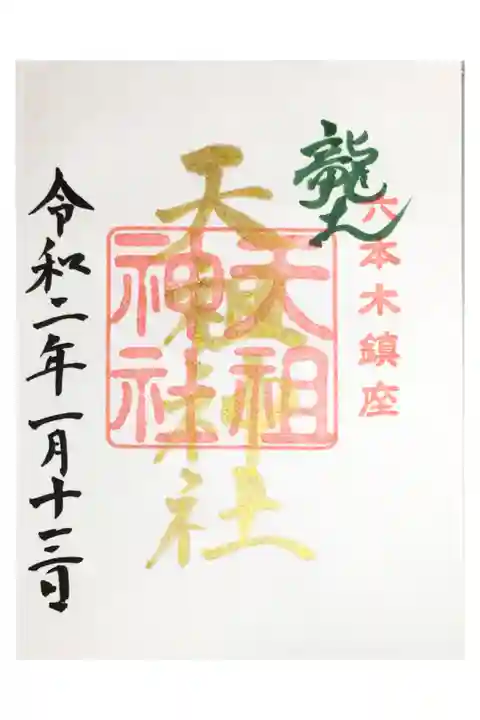 六本木鎮座
龍土
天祖神社
天祖
神社
令和二年一月十三日